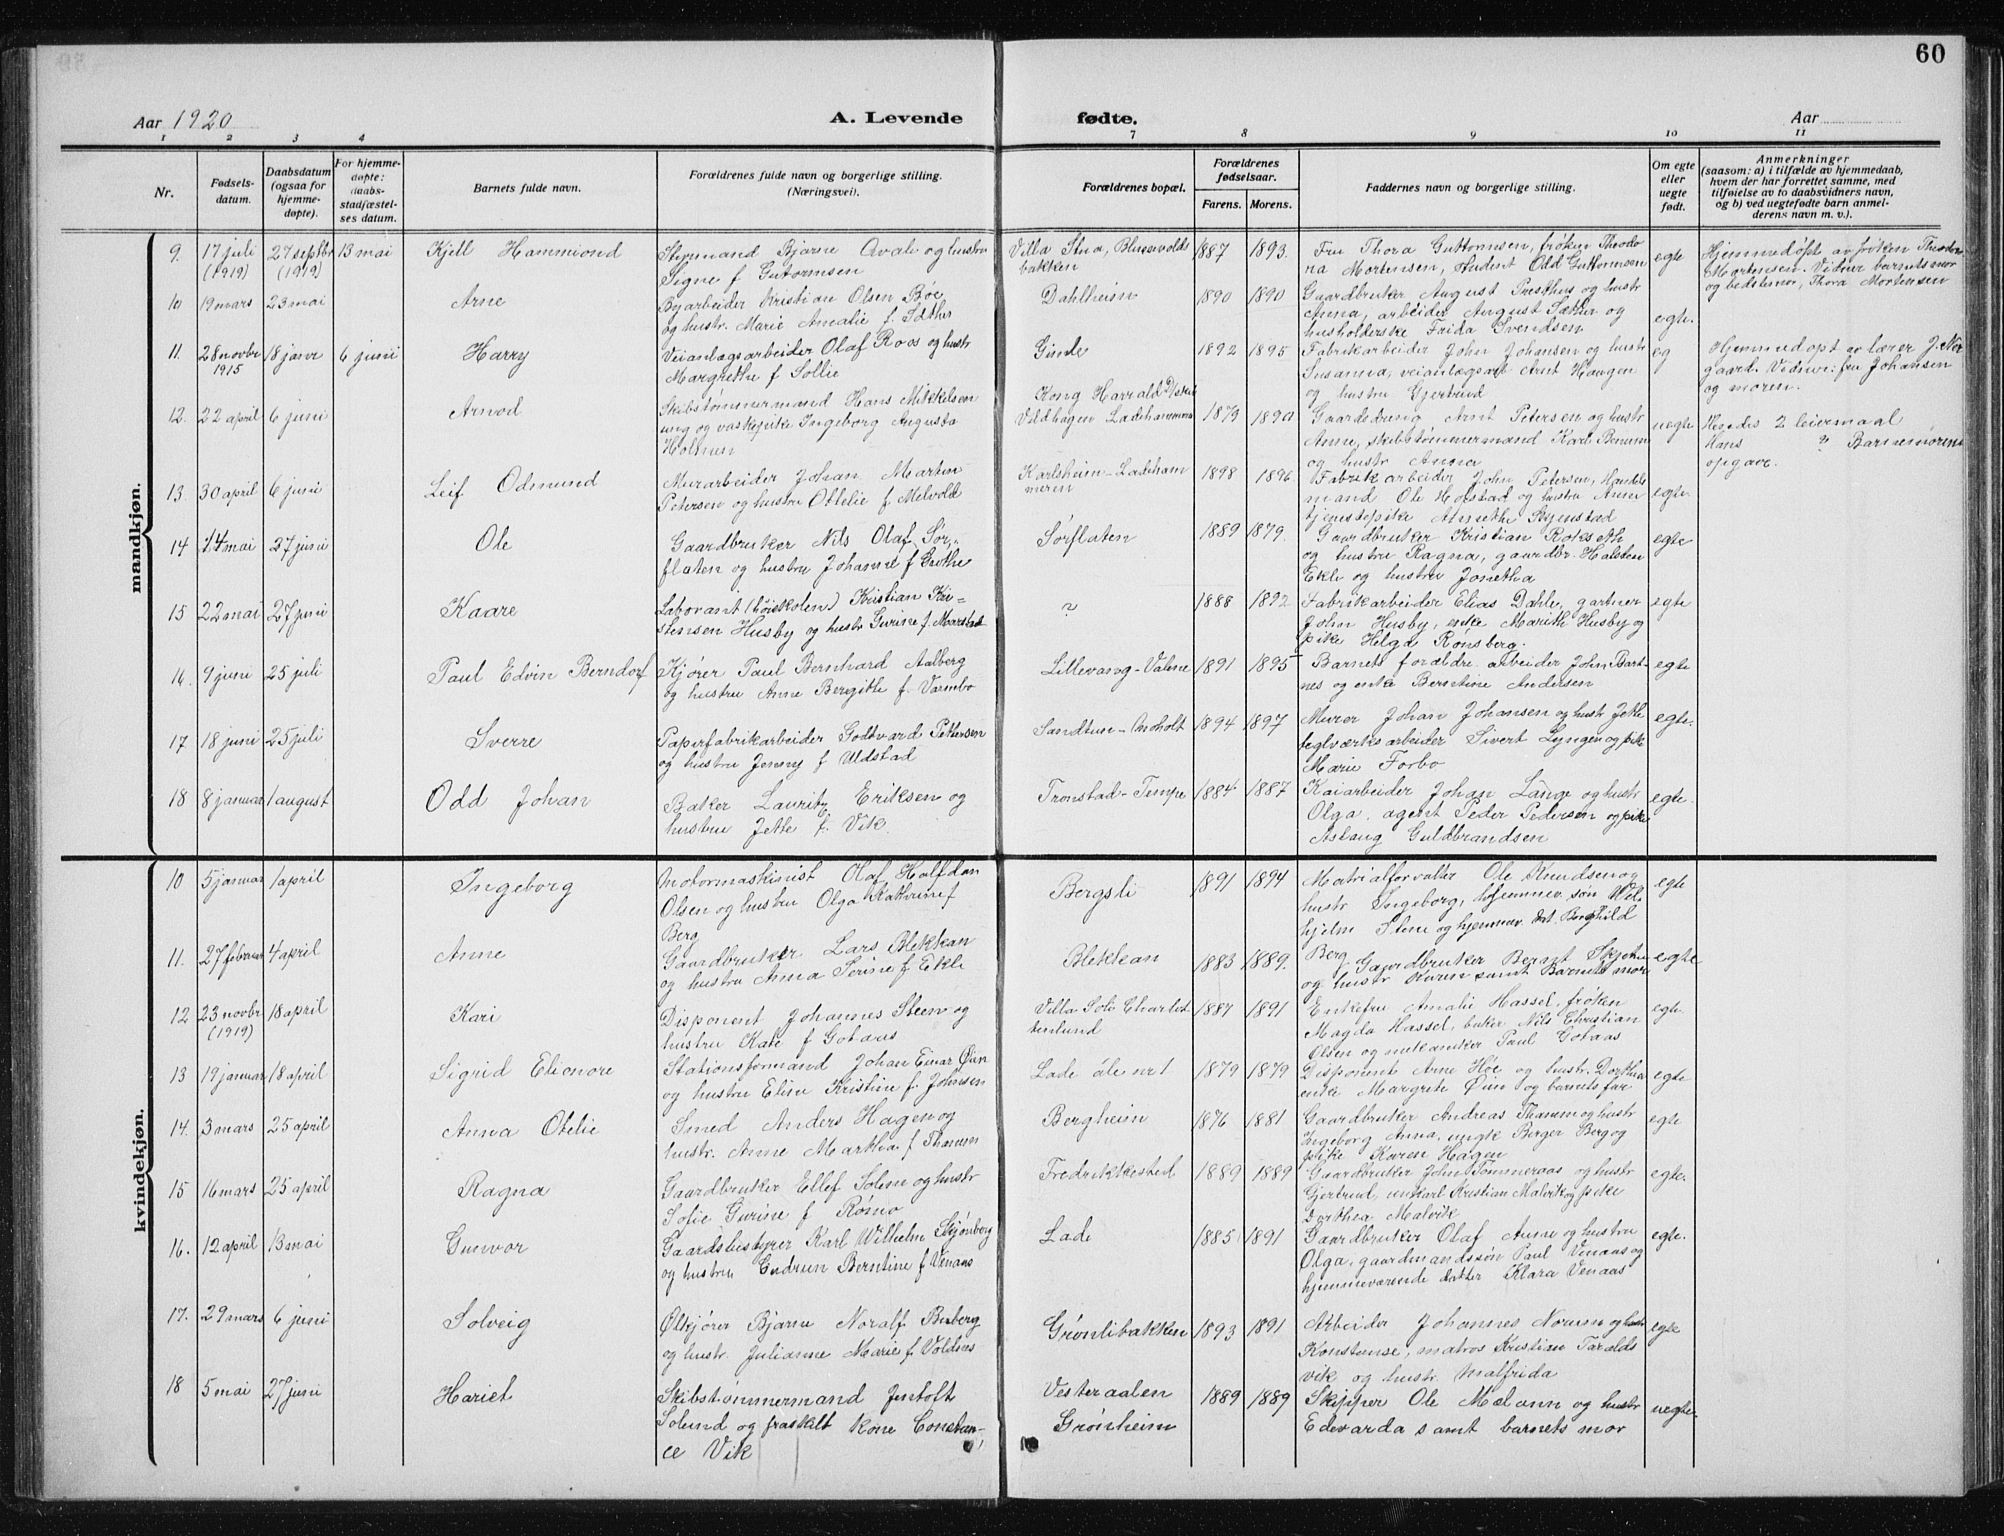 60
Aar 1920
A. Levende
fødte.
Aar
1 2 3 4 7 8 9 10 11
Nr.
Fødsels-
datum.
Daabsdatum
(ogsaa for
hjemme-
døpte).
For hjemme-
døpte:
daabs-
stadfæstel-
ses datum.
Barnets fulde navn.
Forældrenes fulde navn og borgerlige stilling.
(Næringsvei).
Forældrenes bopæl.
Forældrenes
fødselsaar.
Farens. Morens.
Faddernes navn og borgerlige stilling.
Om egte
eller
uegte
født.
Anmerkninger
(saasom: a) i tilfælde av hjemmedaab,
hvem der har forrettet samme, med
tilføielse av to daabsvidners navn,
og b) ved uegtefødte barn anmel-
derens navn m. v.).
mandkjøn.
9. 17 juli 27 septbr 13 mai Kjell Hammond
(1919) (1919)
Styrmand Bjarne Avali og hustru
Signe f Guttormsen
Villa Stua, Blussevolds
bakken
1887 1893.
Fru Thora Guttormsen, frøken Theodo
ra Mortensen, student Odd Guttormsen
egte
Hjemmedøpt av frøken Theodora
Mortensen. Vidner barnets mor
og bedstemor, Thora Mortensen
10 19 mars 23 mai Arne
Byarbeider Kristian Olsen Bøe
og hustr. Marie Amalie f. Sæther
Dahlheim
1890 1890
Gaardbruker August Presthus og hustr
Anna, arbeider August Sæther og
husholderske Frida Svendsen
egte.
11. 28 novbr 18 janr 6 juni Harry
1915
Veianlægsarbeider Olaf Roos og hustr
Margrethe f Sollie
Ginde
1892 1895
Fabrikarbeider John Johansen og hustr
Susanna, veianlægsarb Arnt Haugen
og hustru Gjertrud
eg
Hjemmedøpt av lærer J. Nor
gaard. Vidner: fru Johansen
og moren.
12. 22 april 6 juni Arnod
Skibstømmermand Hans Mikkelsen
ung og vaskepike Ingeborg Augusta
Holmen
Kong Harrald
Vildhagen Ladehammeren
1879 1890
Gaardsdreng Arnt Petersen og hustr
Anne, skibstømmermand Karl
og hustr Anna
uegte
2 leiermaal
Hans " Barnemorens
opgave.
13. 30 april 6 juni Leif Odmund
Murarbeider Johan Martin
Petersen og hustru Ottelie f Melvold
Karlsheim - Ladeham
meren
1898 1896
Fabrikarbeider John Petersen, Handels
mand Ole Hofstad og hustru Anne
tjenestepike Annethe Stjenstad
egte.
14 14 mai 27 juni Ole
Gaardbruker Nils Olaf Sør-
flaten og hustru Johanne f Grøthe
Sørflaten
1889 1879.
Gaardbruker Kristian Rokseth
og hustru Ragna, gaardbr. Halsten
Ekle og hustru Jonetha
egte
15 22 mai 27 juni Kaare
Laborant (høiskolen) Kristian Kri-
stensen Husby og hustr Gurine f. Marstad
"
1888 1892
Fabrikarbeider Elias Dahle, gartner
John Husby, enke Marith Husby og
pike Helga Rønsberg.
egte
16. 9 juni 25 juli Paul Edvin Berndorf
Kjører Paul Bernhard Aalberg
og hustru Anne Bergitte f. Varmbo
Lillevang - Valene
1891 1895
Barnets forældre. arbeider John Bart-
nes og enke Berntine Andersen
egte
17 18 juni 25 juli Sverre
Papirfabrikarbeider Godtvard Pettersen
og hustru Jenny f Uldstad
Sandtun - Moholt
1894 1897
Murer Johan Johansen og hustr Jette
teglværksarbeider Sivert Lyngen og pike
Marie Forbo
egte.
18 8 januar 1 august Odd Johan
Baker Lauritz Eriksen og
hustru Jette f. Vik.
Tronstad - Tempe
1884 1887
Kaiarbeider Johan Lange og hustr
Olga, agent Peder Pedersen og pike
Aslaug Guldbrandsen
egte.
kvindekjøn.
10 5 januar 1 april Ingeborg
Motormaskinist Olaf Halfdan
Olsen og hustru Olga Kathrine f
Berg
Bergsli
1891 1894
Matrialforvalter Ole Knudsen og
hustr Ingeborg, hjemmev. søn Wil-
hjelm Stene og hjemmev dat Borghild
Berg
egte
11. 27 februar 4 april Anne
Gaardbruker Lars Blekkan
og hustru Anna Serine f Ekle
Blekkan
1883 1889.
Gaardbruker Bernt
og hustr Karen samt Barnets mor
egte
12 23 novbr 18 april Kari
(1919)
Disponent Johannes Steen og
hustru Kate f Gotaas
Villa Soli Charlot
tenlund
1887 1891
Enkefru Amalie Hassel, frøken
Magda Hassel, baker Nils Christian
Olsen og mekaniker Paul Gotaas
egte.
13 19 januar 18 april Sigrid Elionore
Stationsformand Johan Einar Øien
og hustru Elise Kristine f. Johnsen
Lade
1879 1879
Disponent Arne Høe og hustr. Dorthea
enke Margrete Øien og barnets far
egte
14. 3 mars 25 april Anna Otelie
Smed Anders Hagen og
hustr. Anne Martha f Thamm
Bergheim
1876 1881
Gaardbruker Andreas Thamm og hustr
Ingeborg Anna, ungk Berger Berg og
pike Karen Hagen
egte
15 16 mars 25 april Ragna
Gaardbruker Ellef Solem og hustr
Sofie Gurine f Rømo
Fredrikkested
1889 1889
Gaardbruker John Tømmeraas og hustr
Gjertrud, ungkarl Kristian Malvik og pike
Dorthea Malvik
egte.
16. 12 april 13 mai Gunvor
Gaardsbestyrer Karl Wilhelm Skjønberg
og hustru Gudrun Berntine f Venaas
Lade
1885 1891
Gaardbruker Olaf Aune og hustru
Olga, gaardmandssøn Paul Venaas og
hjemmeværende datter Klara Venaas
egte.
17. 29 mars 6 juni Solveig
Ølkjører Bjarne Noralf Buberg
og hustr. Julianne Marie f. Voldnes
Grønlibakken
1893 1891
Arbeider Johannes Norum og hustr
Konstanse, matros Kristian Taralds
vik og hustr Malfrida
egte
18 5 mai 27 juni Hariet
Skibstømmermand Jentoft
Solund og fraskilt kone Constan-
ce Vik
Vesteraalen
Grønheim
1889 1889
Skipper Ole Melann og hustr
Edevarda samt barnets mor
uegte.